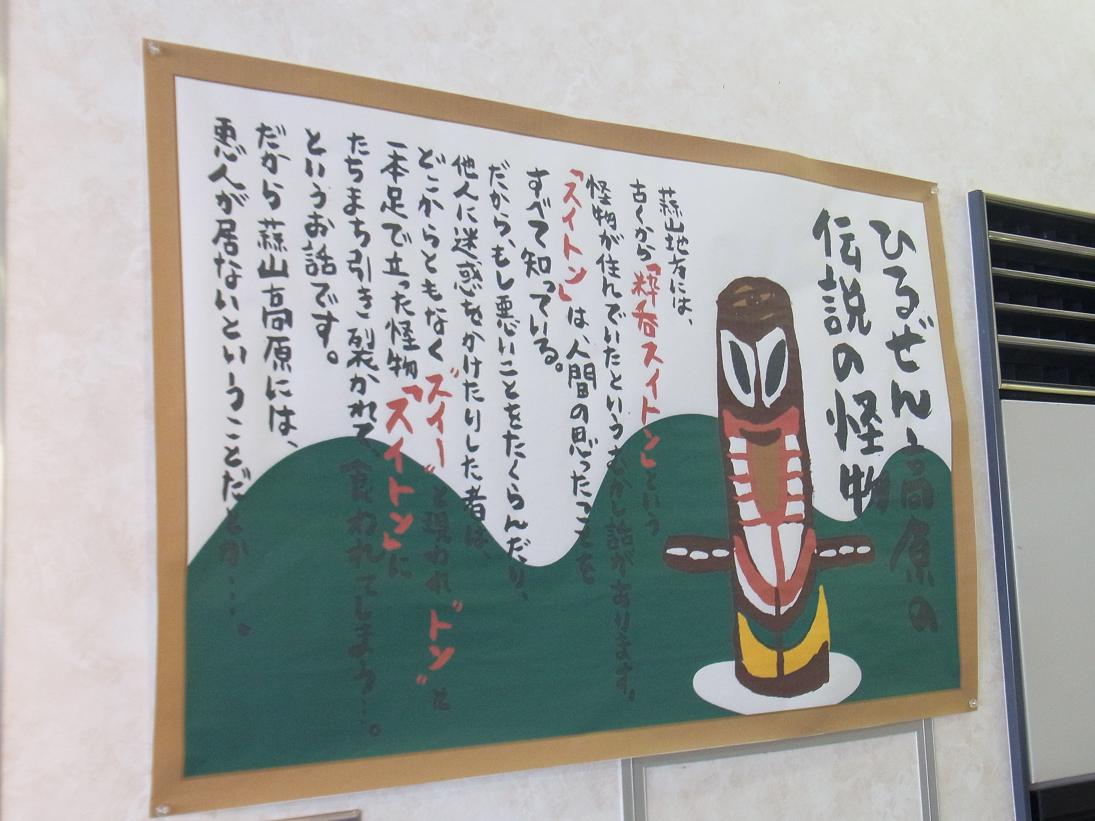 ひるぜん高原の
伝説の怪物
蒜山地方には、
古くから「粋呑スイトン」という
怪物が住んでいたというむかし話があります。
「スイトン」は、人間の思ったことを
すべて知っている。
だから、もし悪いことをたくらんだり、
他人に迷惑をかけたりした者は、
どこからともなく“スイー”と現われ“トン”と
一本足で立った怪物「スイトン」に
たちまち引き裂かれて食われてしまう…。
というお話です。
だから蒜山高原には、
悪人が居ないということだとか…。